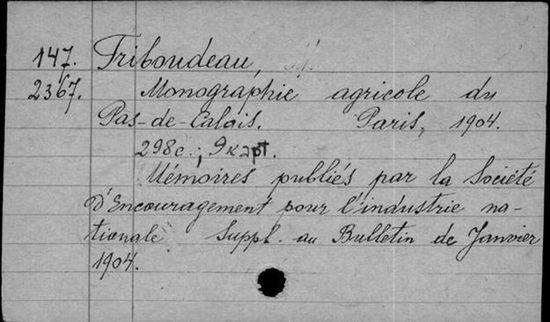 147. Triboudeau,
2367. Monographie agricole du
Pas-de-Calais. Paris, 1904.
298c.; 9 карт.
Mémoires publiés par la Société
d'Encouragement pour l'industrie na-
tionale Suppl. au Bulletin de Janvier
1904.